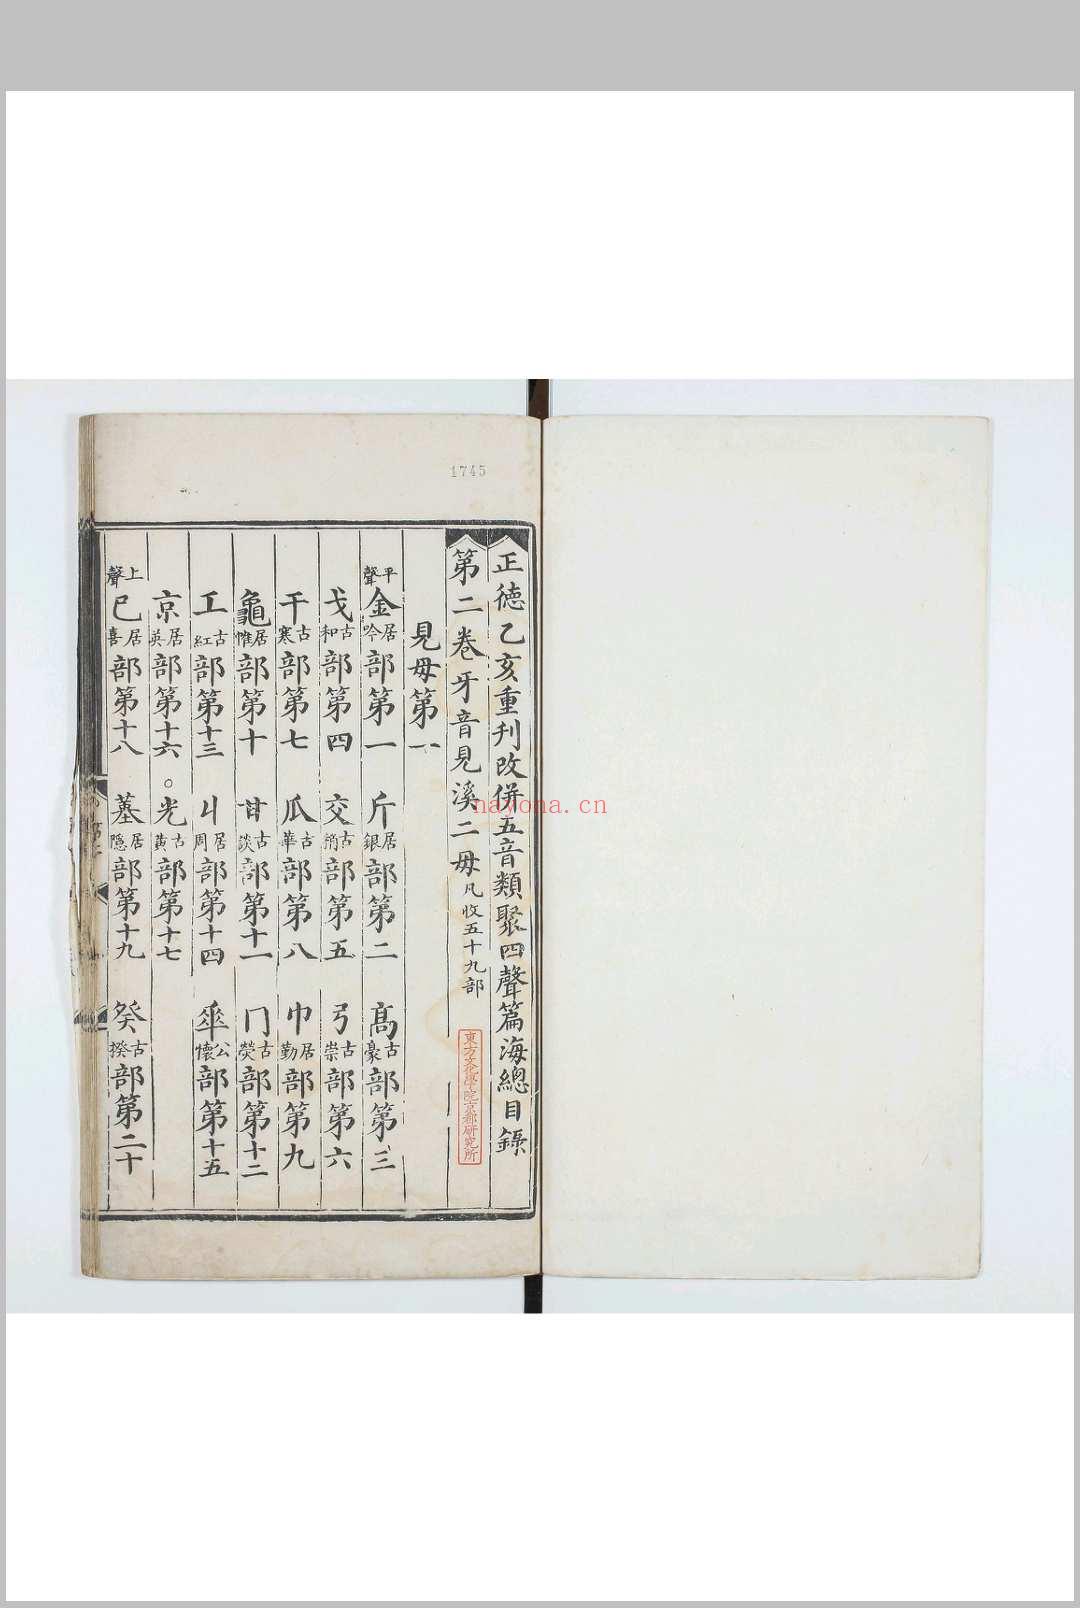 1745
正德乙亥重刊改併五音類聚四聲篇海總目錄
第二卷牙音見溪二母凡收五十九部
東方文化學院京都研究所
見母第一
平聲 金居吟部第一 斤居銀部第二 高古豪部第三
戈古和部第四 交古肴部第五 弓古崇部第六
干古寒部第七 瓜古華部第八 巾居勤部第九
龜居惟部第十 甘古談部第十一 冂古熒部第十二
工古紅部第十三 丩居周部第十四 𠦬公懷部第十五
京居英部第十六 ○光古黃部第十七
上聲 己居喜部第十八 堇居隱部第十九 癸古揆部第二十
nayona.cn